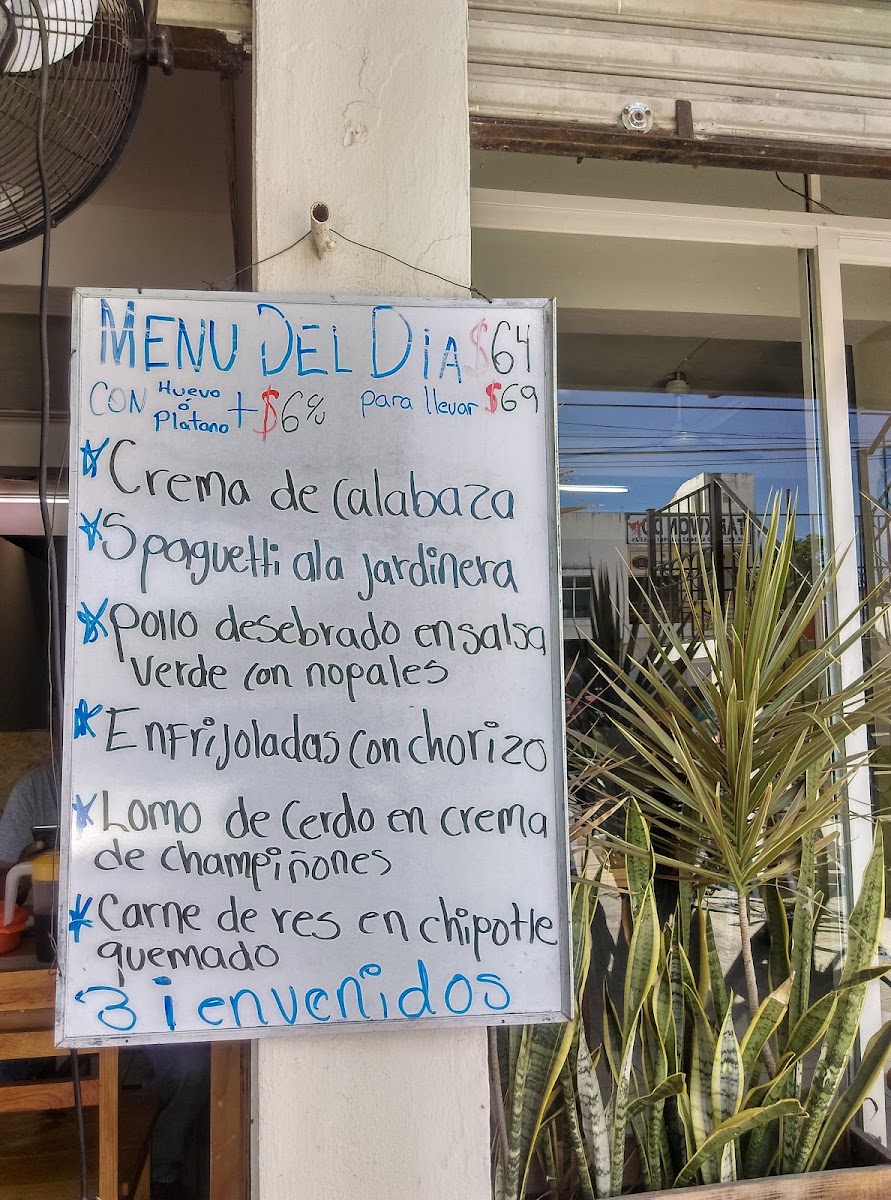 MENU DEL DIA $64
CON Huevo ó Platano + $6% para llevar $69
Crema de calabaza
Spaguetti ala jardinera
pollo desebrado en salsa
verde con nopales
Enfrijoladas con chorizo
Lomo de cerdo en crema
de champiñones
Carne de res en chipotle
quemado
Bienvenidos